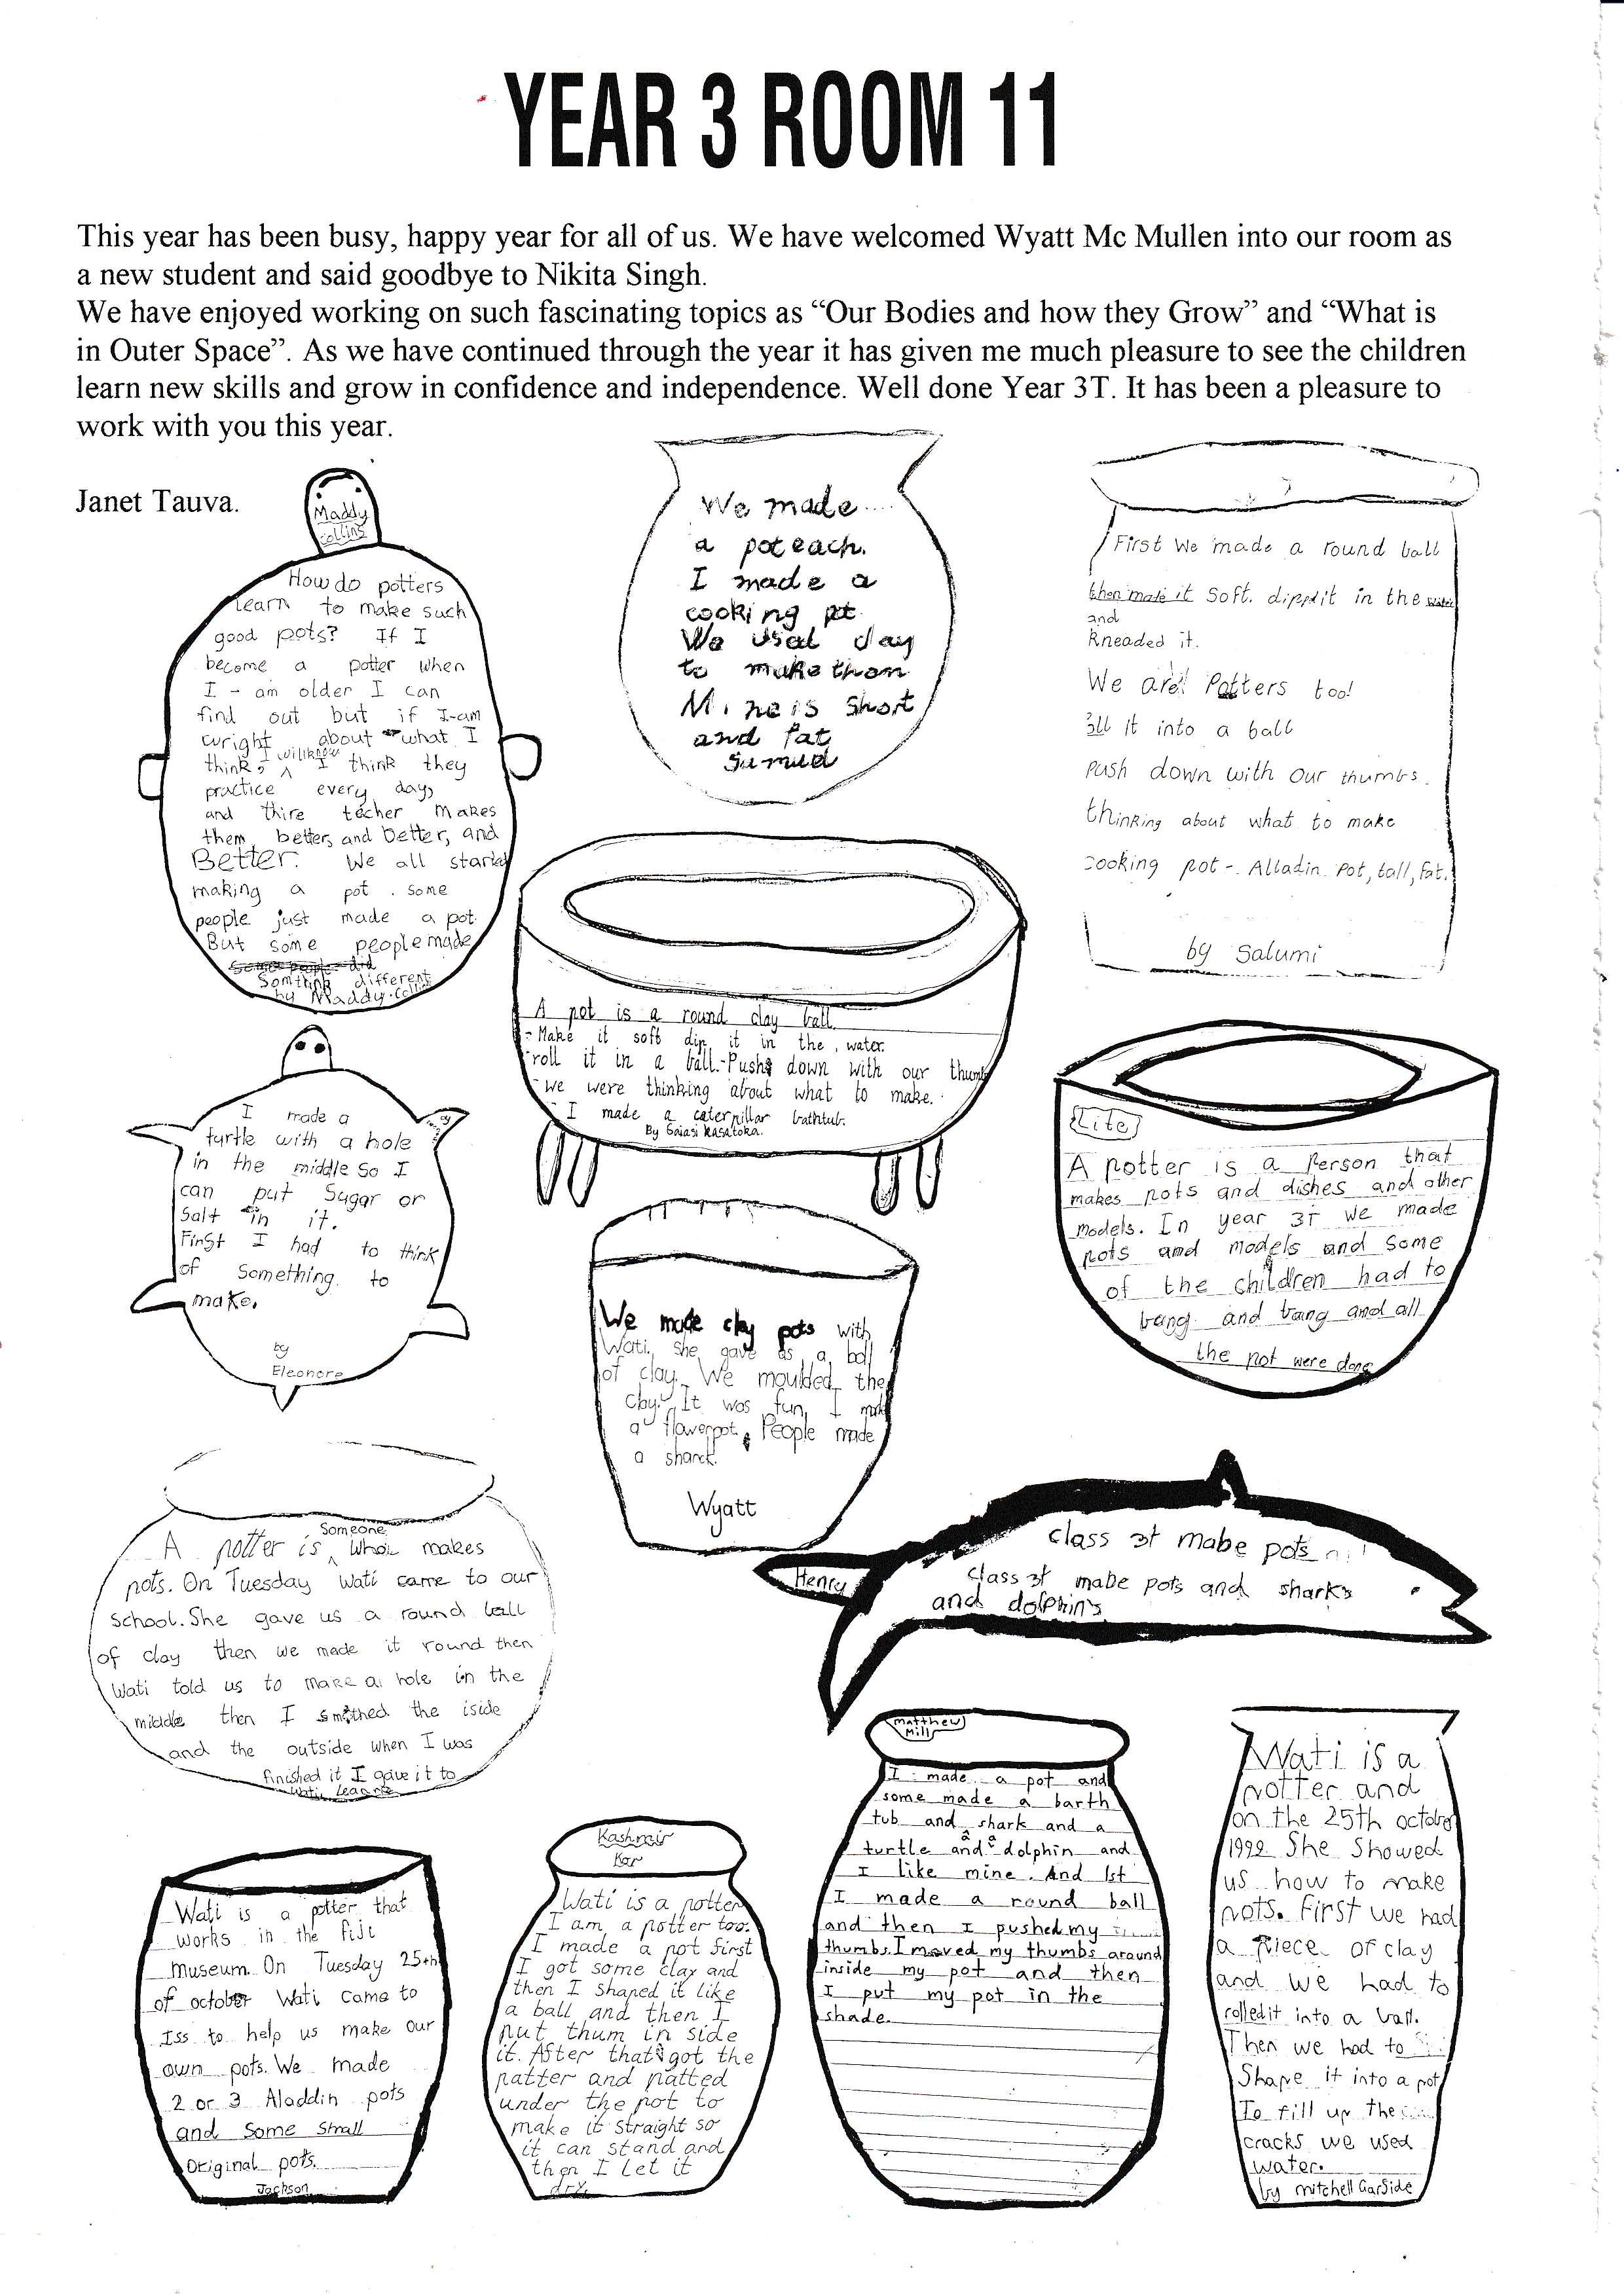 YEAR 3 ROOM 11
This year has been busy, happy year for all of us. We have welcomed Wyatt Mc Mullen into our room as
a new student and said goodbye to Nikita Singh.
We have enjoyed working on such fascinating topics as “Our Bodies and how they Grow” and “What is
in Outer Space”. As we have continued through the year it has given me much pleasure to see the children
learn new skills and grow in confidence and independence. Well done Year 3T. It has been a pleasure to
work with you this year.
Janet Tauva.
Maddy
Collins
How do potters
learn to make such
good pots? If I
become a potter when
I-am older I can
find out but if I-am
wright about what I
think, I will know I think they
practice every day,
and thire techer makes
them better, and better, and
Better. We all started
making a pot. some
people just made a pot.
But some people made
some people did
Somthink different
by Maddy.Collins
We made
a pot each.
I made a
cooking pot
We used clay
to make them
Mine is short
and fat
Sumud
First We made a round ball
then make it soft. dipp it in the water
and
kneaded it.
We are Potters too!
all it into a ball
push down with our thumbs.
thinking about what to make
cooking pot-. Alladin Pot, tall, fat.
by Salumi
A pot is a round clay ball.
-Make it soft dip it in the water.
-roll it in a ball.-Push down with our thumbs
-we were thinking about what to make.
I made a caterpillar bathtub.
By Saiasi Kasatoka.
I made a
turtle with a hole
in the middle so I
can put Sugar or
Salt in it.
First I had to think
of something to
make.
by
Eleonore
Lite
A potter is a Person that
makes pots and dishes and other
models. In year 3T we made
pots and models and some
of the children had to
bang and bang and all
the pot were done
We made clay pots with
Wati. she gave as a ball
of clay. We moulded the
clay. It was fun, I make
a flowerpot. People made
a sharck.
Wyatt
A potter is Someone who makes
pots. On Tuesday Wati came to our
School. She gave us a round ball
of clay then we made it round then
Wati told us to make a hole in the
middle then I smothed the iside
and the outside when I was
finished it I gave it to
Wati.
Henry
class 3t mabe pots
class 3t mabe pots and sharks
and dolphins
Wati is a potter that
works in the fiji
museum. On Tuesday 25th
of october Wati came to
Iss to help us make our
own pots. We made
2 or 3 Aladdin pots
and some small
Original pots.
Jackson
Kashmir
Kar
Wati is a potter
I am a potter too.
I made a pot first
I got some clay and
then I shaped it like
a ball and then I
put thum in side
it. After that I got the
patter and patted
under the pot to
make it straight so
it can stand and
then I let it
dry.
Matthew
Mill
I made a pot and
some made a barth
tub and shark and a
turtle and a dolphin and
I like mine. And 1st
I made a round ball
and then I pushed my
thumbs. I moved my thumbs around
inside my pot and then
I put my pot in the
shade.
Wati is a
potter and
on the 25th october
She Showed
us how to make
pots. First we had
a Piece of clay
and we had to
rolled it into a ball.
Then we had to
Shape it into a pot
To fill up the
cracks we used
water.
by Mitchell Garside